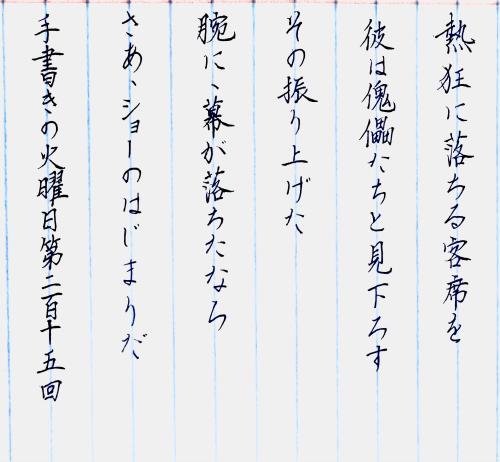 熱狂に落ちる客席を
彼は傀儡たちと見下ろす
その振り上げた
腕に、幕が落ちたなら
さあ、ショーのはじまりだ
手書きの火曜日第二百十五回